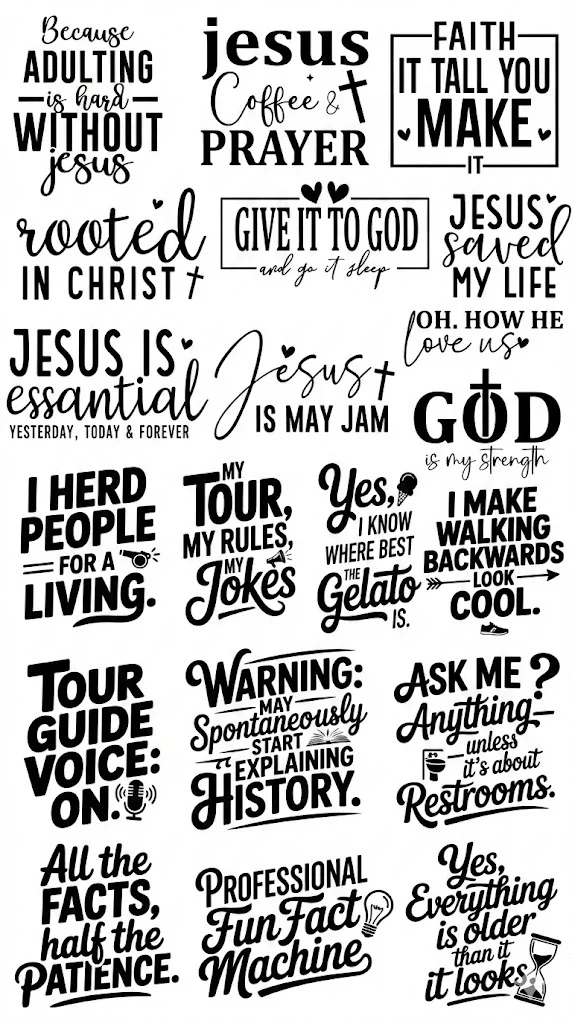 Because
ADULTING
is hard
WITHOUT
jesus
jesus
Coffee &
PRAYER
FAITH
IT TALL YOU
MAKE
IT
rooted
IN CHRIST
GIVE IT TO GOD
and go it sleep
JESUS
saved
MY LIFE
JESUS IS
essantial
YESTERDAY, TODAY & FOREVER
Jesus
IS MAY JAM
OH. HOW HE
love us
GOD
is my strength
I HERD
PEOPLE
FOR A
LIVING.
MY
TOUR,
MY RULES,
MY
JOKES
Yes,
I KNOW
WHERE BEST
THE
Gelato
IS.
I MAKE
WALKING
BACKWARDS
LOOK
COOL.
TOUR
GUIDE
VOICE:
ON.
WARNING:
MAY
Spontaneously
START
“EXPLAINING
HISTORY.
ASK ME?
Anything
unless
it's about
Restrooms.
All the
FACTS,
half the
PATIENCE.
PROFESSIONAL
Fun Fact
Machine
Yes,
Everything
is older
than it
it looks.